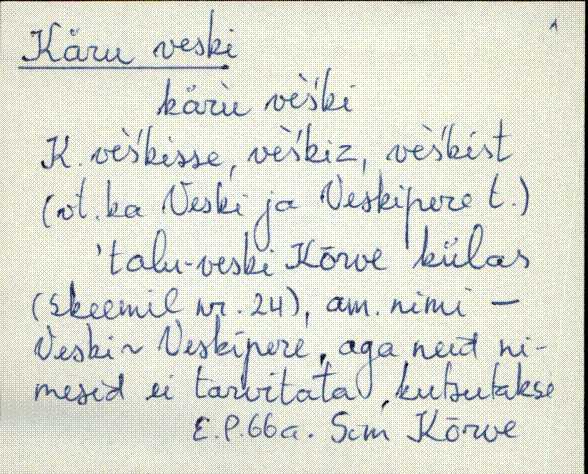 Käru veski
käru̬ ve̬s̆ki
K. vès̆kisse, vès̆kiz, vès̆kist
(vt. ka Veski ja Veskipere t.)
'talu-veski Kõrve külas
(skeemil nr. 24), am. nimi –
Veski ~ Veskipere, aga neid ni-
mesid ei tarvitata, kutsutakse
E.P.66a. Sim Kõrve